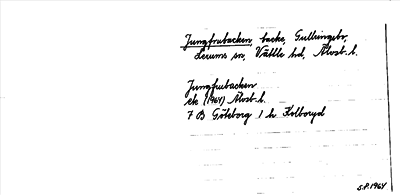 Jungfrubacken, backe, Gullringsbo,
Lerums sn, Vättle hd, Älvsb. l.
Jungfrubacken
ek (1964) Älvsb. l.
7 B Göteborg 1 h Kolboryd
S.P. 1964